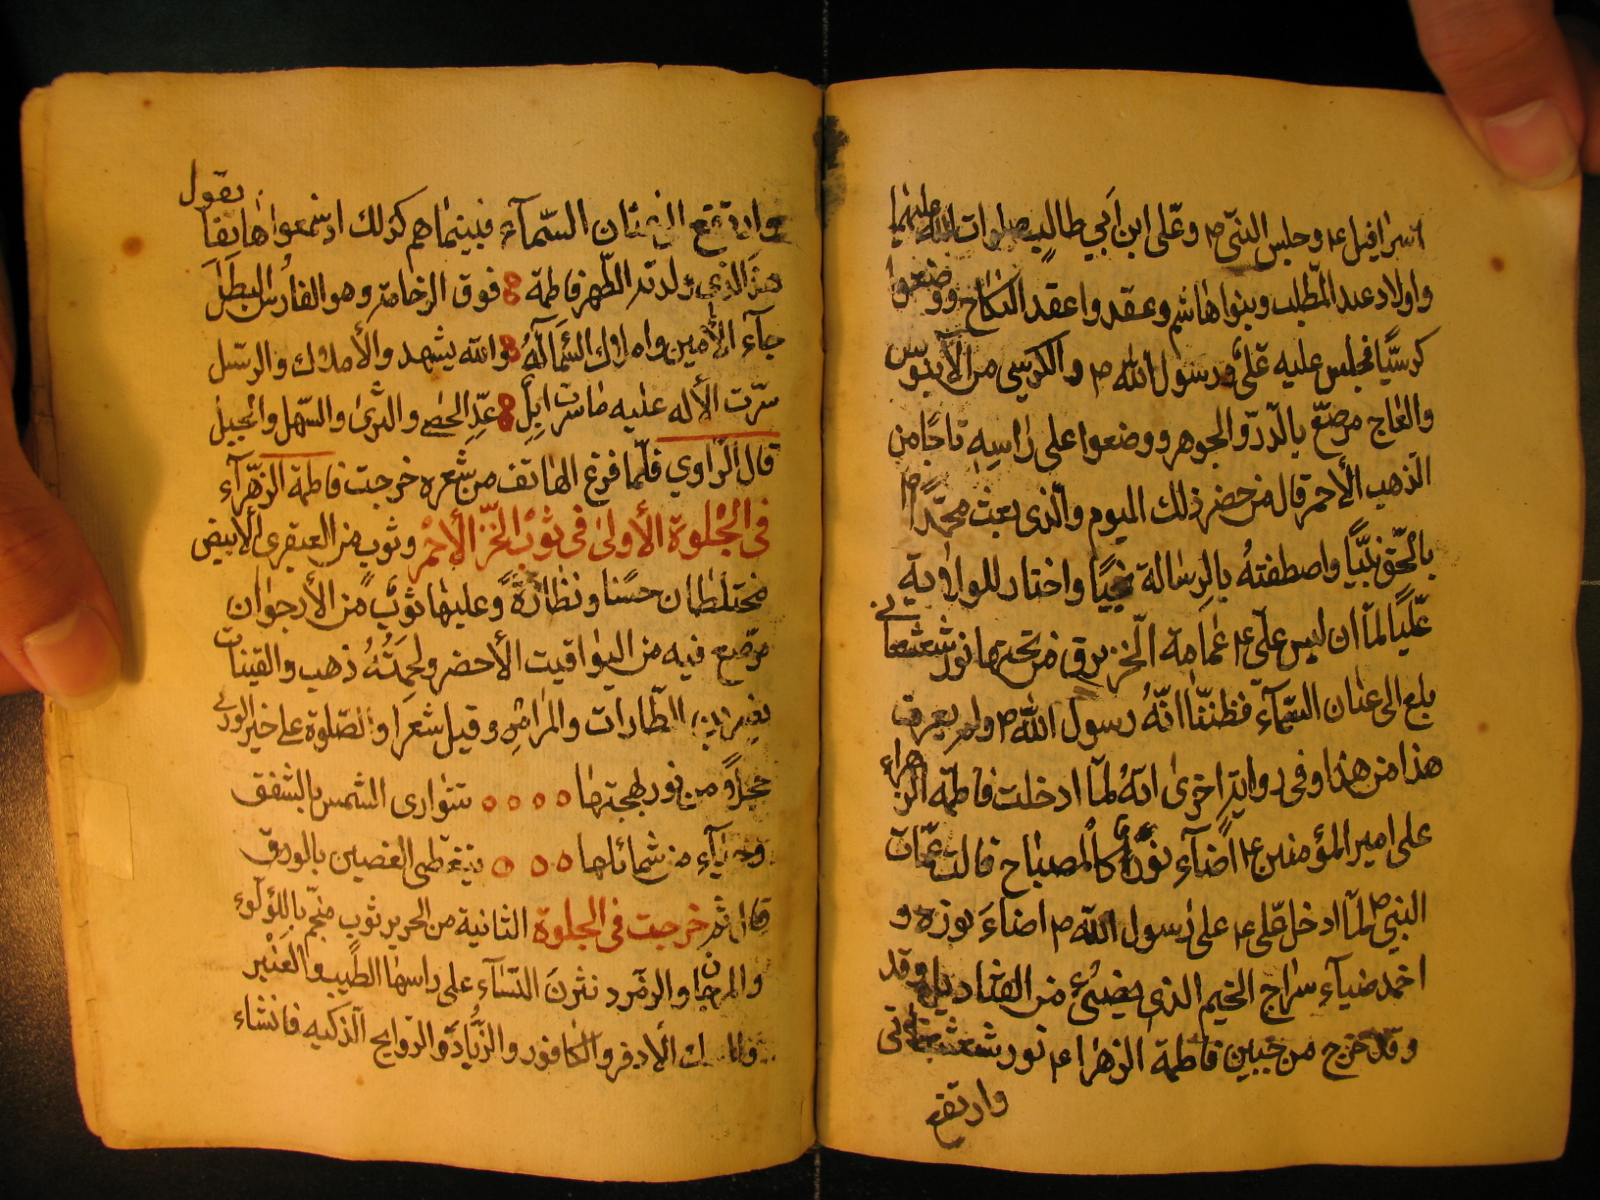 اسرافيل ع وجلس النبي ص وعلى ابن ابي طالب صلوات الله عليهما
واولاد عبد المطلب وبنوا هاشم وعقد واعقد النكاح ووضعوا
كرسيًّا فجلس عليه علىّ ورسول الله ص والكرسي من الآبنوس
والعاج مرصّع بالدّرّ والجوهر ووضعوا على راسه تاجًا من
الذهب الأحمر قال من حضر ذلك اليوم والّذى بعث محمّدًا ص
بالحّق نبيًّا واصطفته بالرسالة نجيًّا واختار للولاية
عليًّا لمّا ان لبس علّى ع عمامة الخز برق من تحتها نور شعشعانى
بلغ الى عنان السّمآء فظننّا انّهُ رسول الله ص ولم يعرف
هذا من هذا وفى رواية اخرىٰ انهُ لمّا ادخلت فاطمة الزهراء
على امير المؤمنين ع اضآء نورها كالمصباح قالت عمّات
النبى ص لمّا ادخل علّى ع على رسول الله ص اضاءَ نوره و
اخمد ضيآء سراج الخيم الذى يضىٔ من القناديل وقد
وقد خرج من جبين فاطمة الزهرا ع نور شعشعانى
وارتفع
وارتفع الى عنان السّمآء فبينما هم كذلك اذ سمعوا هاتفا يقول
هذا الذي ولدته الطّهر فاطمة فوق الرخامة وهو الفارس البطل
جآء الأمين واملاك السّما له والله يشهد والأملاك والرسل
سرت الأله عليه ما سرت ابل عدّ الحصى والثرىٰ والسّهل والجبل
قال الرّاوي فلمّا فرغ الهاتف من شعره خرجت فاطمة الزهرآء
فى الجلوة الأولىٰ فى ثوب الخّز الأحمر وثوب من العبقرى الأبيض
مختلطان حسنا ونظارةً وعليها ثوبٌ من الأرجوان
مرصّع فيه من اليواقيت الأخضر ولحمته ذهب والقينات
يضربن الطّارات والمزاهر وقيل شعرا والصّلوة على خير الورى
خجلاً من نور بهجتها تتوارى الشمس بالشفق
وحيآء من شمائلها يتغطى الغصين بالورق
قال ثم خرجت فى الجلوة الثانية من الحرير ثوب منجّم باللؤلوء
والمرجان والزمّرد نثرن النسآء على راسها الطّيب والعنبر
والمسك الاذفر والكافور والزّباد والروايح الّذكيه فانشاء